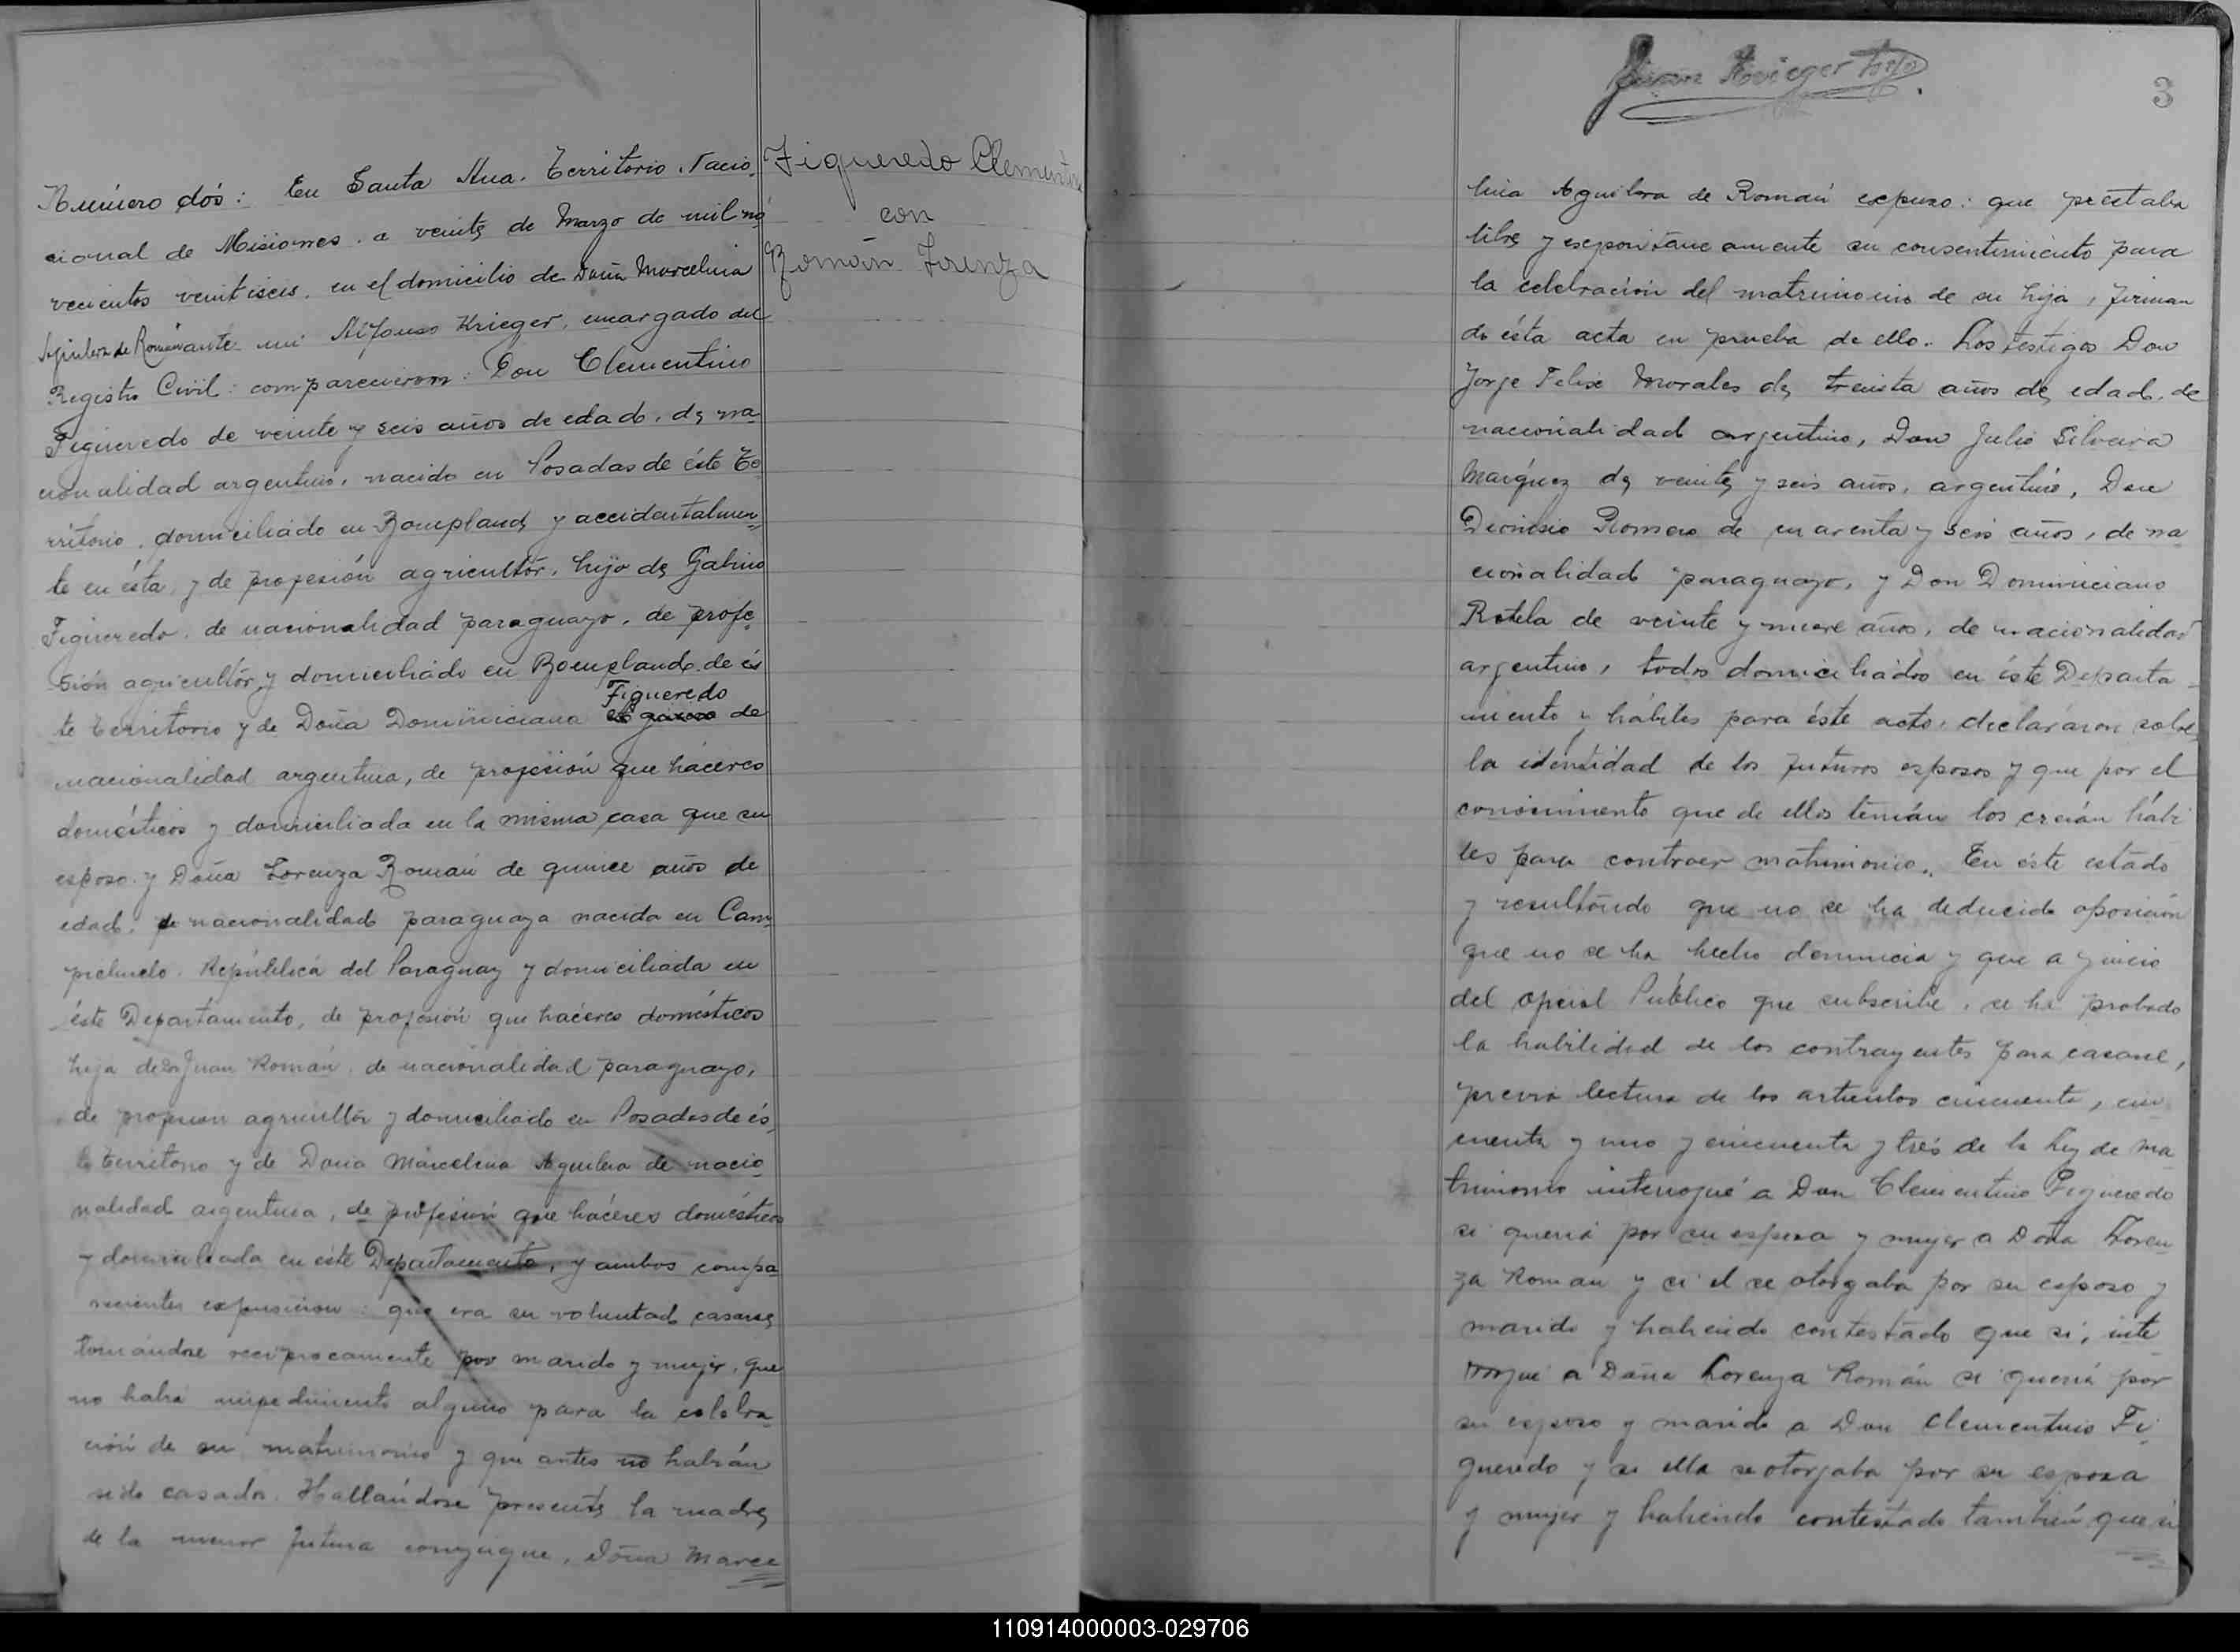 Número dós: En Santa Ana. Territorio Nacio-
cional de Misiones. a veinte de Marzo de mil no-
vecientos veintiseis. en el domicilio de Doña Marcelina
Aguilera de Román ante mi Alfonso Krieger, encargado del
Registro Civil: comparecieron: Don Clementino
Figueredo de veinte y seis años de edad, de na-
cionalidad argentino, nacido en Posadas de éste Te-
rritorio, domiciliado en Bompland y accidentalmen-
te en ésta, y de profesión agricultór, hijo de Gabino
Figueredo. de nacionalidad paraguayo. de profe-
sión agricultór y domiciliado en Bompland. de és-
te territorio y de Doña Dominiciana Figueredo de
nacionalidad argentina, de profesión que háceres
domésticos y domiciliada en la misma casa que su
esposo. y Doña Lorenza Román de quince años de
edad. de nacionalidad paraguaya nacida en Cam-
pichuelo. República del Paraguay y domiciliada en
éste Departamento, de profesión que háceres domésticos
hija de Dn Juan Román. de nacionalidad paraguayo,
de profesion agricultór y domiciliado en Posadas de és-
te territorio y de Doña Marcelina Aguilera de nacio-
nalidad argentina, de profesión que háceres domésticos
y domiciliada en este Departamento, y ambos compa-
recientes expusieron: que era su voluntad casarse
tomándose reciprocamente por marido y mujer, que
no había impedimento alguno para la celebra-
ción de su matrimonio y que antes no habían
sido casados. Hallándose presente la madre
de la menor futura conyugue, Doña Marce
Figueredo Clementino
con
Román Lorenza
Juan Krieger
3
lina Aguilera de Román expuso: que prestaba
libre y espontaneamente su consentimiento para
la celebración del matrimonio de su hija, firman
do ésta acta en prueba de ello. Los testigos Don
Jorge Felix Morales de treinta años de edad, de
nacionalidad argentino, Don Julio Silveira
Marquez de veinte y seis años, argentino, Don
Dionisio Romero de cuarenta y seis años, de na
cionalidad paraguayo, y Don Dominiciano
Rotela de veinte y nueve años, de nacionalidad
argentino, todos domiciliados en éste Departa-
mento y hábiles para éste acto, declararon sobre
la identidad de los futuros esposos y que por el
conocimiento que de ellos tenián los creián hábi
les para contraer matrimonio. En éste estado
y resultándo que no se ha deducido oposición
que no se ha hecho denuncia y que a juicio
del oficial Público que subscribe, se ha probado
la habilidad de los contrayentes para casarse,
previa lectura de los artículos cincuenta, cin
cuenta y uno y cincuenta y trés de la Ley de ma
trimonio interrogué a Don Clementino Figueredo
si queriá por su esposa y mujer a Doña Loren-
za Román y si él se otorgaba por su esposo y
marido y habiendo contestádo que si, inte
rrogué a Doña Lorenza Román si queriá por
su esposo y marido a Don Clementino Fi-
gueredo y si ella se otorgaba por su esposa
y mujer y habiendo contestado también que si
110914000003-029706